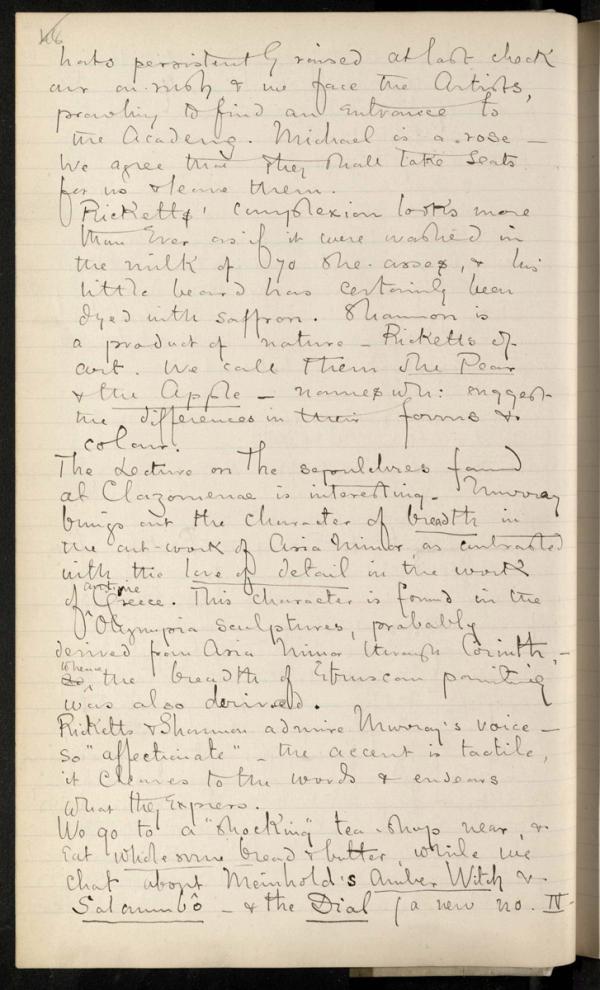 46
hats persistently raised at last check
our on-rush & we face the Artists,
prowling to find an entrance to
the Academy. Michael is a rose —
We agree that they shall take seats
for us & leave them.
Ricketts' complexion looks more
than ever as if it were washed in
the milk of 70 she-asses, & his
little beard has certainly been
dyed with saffron. Shannon is
a product of nature — Ricketts of
art. We call them the Pear
& the Apple — names wh: suggest
the differences in their forms &
colour.
The Lecture on the sepulchres found
at Clazomenae is interesting. Murray
brings out the character of breadth in
the art-work of Asia Minor, as contrasted
with the love of detail in the work
of Greece. This character is found in the
Olympia sculptures, probably
derived from Asia Minor through Corinth, —
whence
so the breadth of Etruscan painting
was also derived.
Ricketts & Shannon admire Murray's voice —
so "affectionate" — the accent is tactile,
it cleaves to the words & endears
what they express.
We go to a "shocking" tea-shop near, &
eat wholesome bread & butter, while we
chat about Meinhold's Amber Witch &
Salammbô — & the Dial (a new no. IV